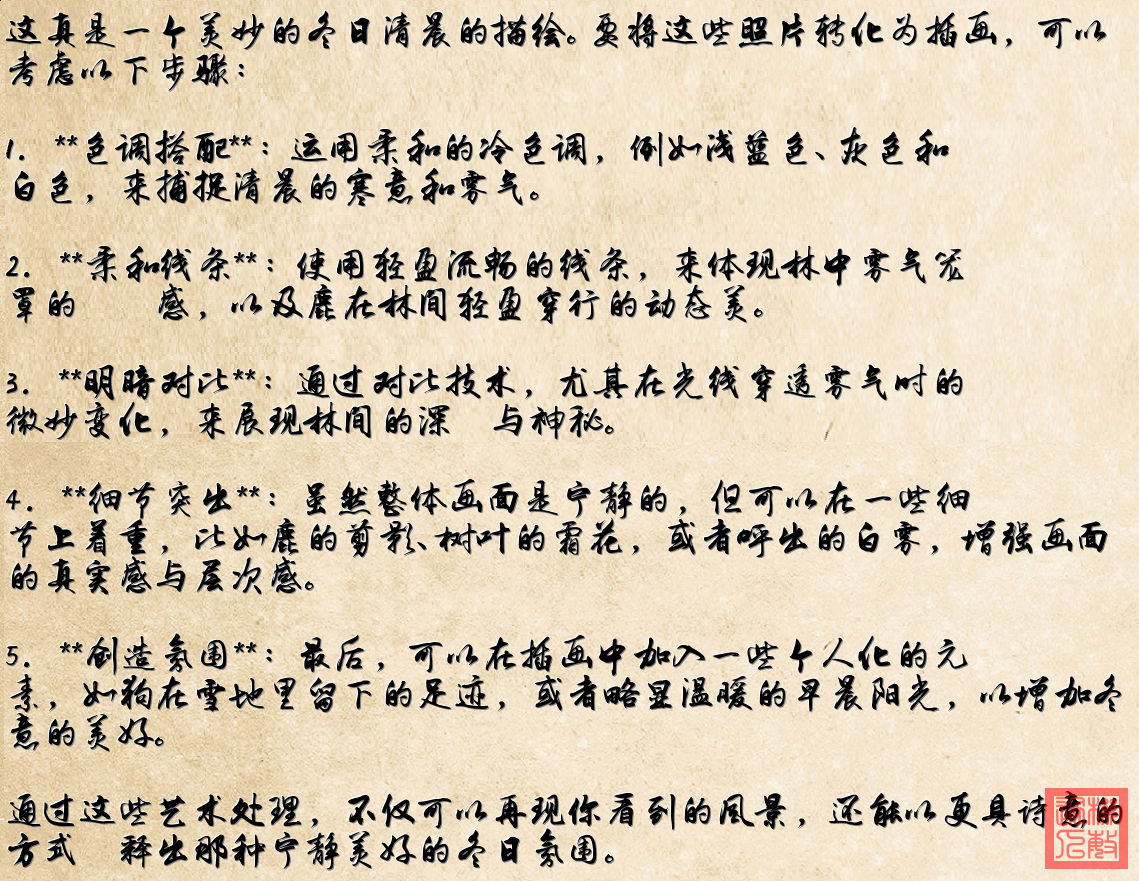 这真是一个美妙的冬日清晨的描绘。要将这些照片转化为插画，可以
考虑以下步骤：
1. **色调搭配**：运用柔和的冷色调，例如浅蓝色、灰色和
白色，来捕捉清晨的寒意和雾气。
2. **柔和线条**：使用轻盈流畅的线条，来体现林中雾气笼
罩的 感，以及鹿在林间轻盈穿行的动态美。
3. **明暗对比**：通过对比技术，尤其在光线穿透雾气时的
微妙变化，来展现林间的深 与神秘。
4. **细节突出**：虽然整体画面是宁静的，但可以在一些细
节上着重，比如鹿的剪影、树叶的霜花，或者呼出的白雾，增强画面
的真实感与层次感。
5. **创造氛围**：最后，可以在插画中加入一些个人化的元
素，如狗在雪地里留下的足迹，或者略显温暖的早晨阳光，以增加冬
意的美好。
通过这些艺术处理，不仅可以再现你看到的风景，还能以更具诗意的
方式 释出那种宁静美好的冬日氛围。